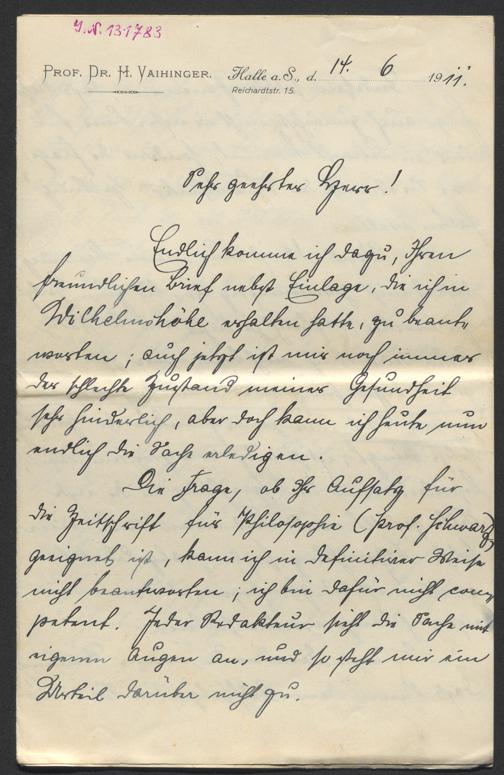 J. N. 131783
PROF. DR. H. VAIHINGER.
Halle a. S., d. 14. 6 1911.
Reichardtstr. 15.
Sehr geehrter Herr!
Endlich komme ich dazu, Ihren
freundlichen Brief nebst Einlage, die ich in
Wilhelmshöhe erhalten hatte, zu beant-
worten; auch jetzt ist mir noch immer
der schlechte Zustand meiner Gesundheit
sehr hinderlich, aber doch kann ich heute nun
endlich die Sache erledigen.
Die Frage, ob Ihr Aufsatz für
die Zeitschrift für Philosophie (Prof. Schwarz)
geeignet ist, kann ich in definitiver Weise
nicht beantworten; ich bin dafür nicht com-
petent. Jeder Redakteur sieht die Sache mit
eigenen Augen an, und so steht mir ein
Urteil darüber nicht zu.